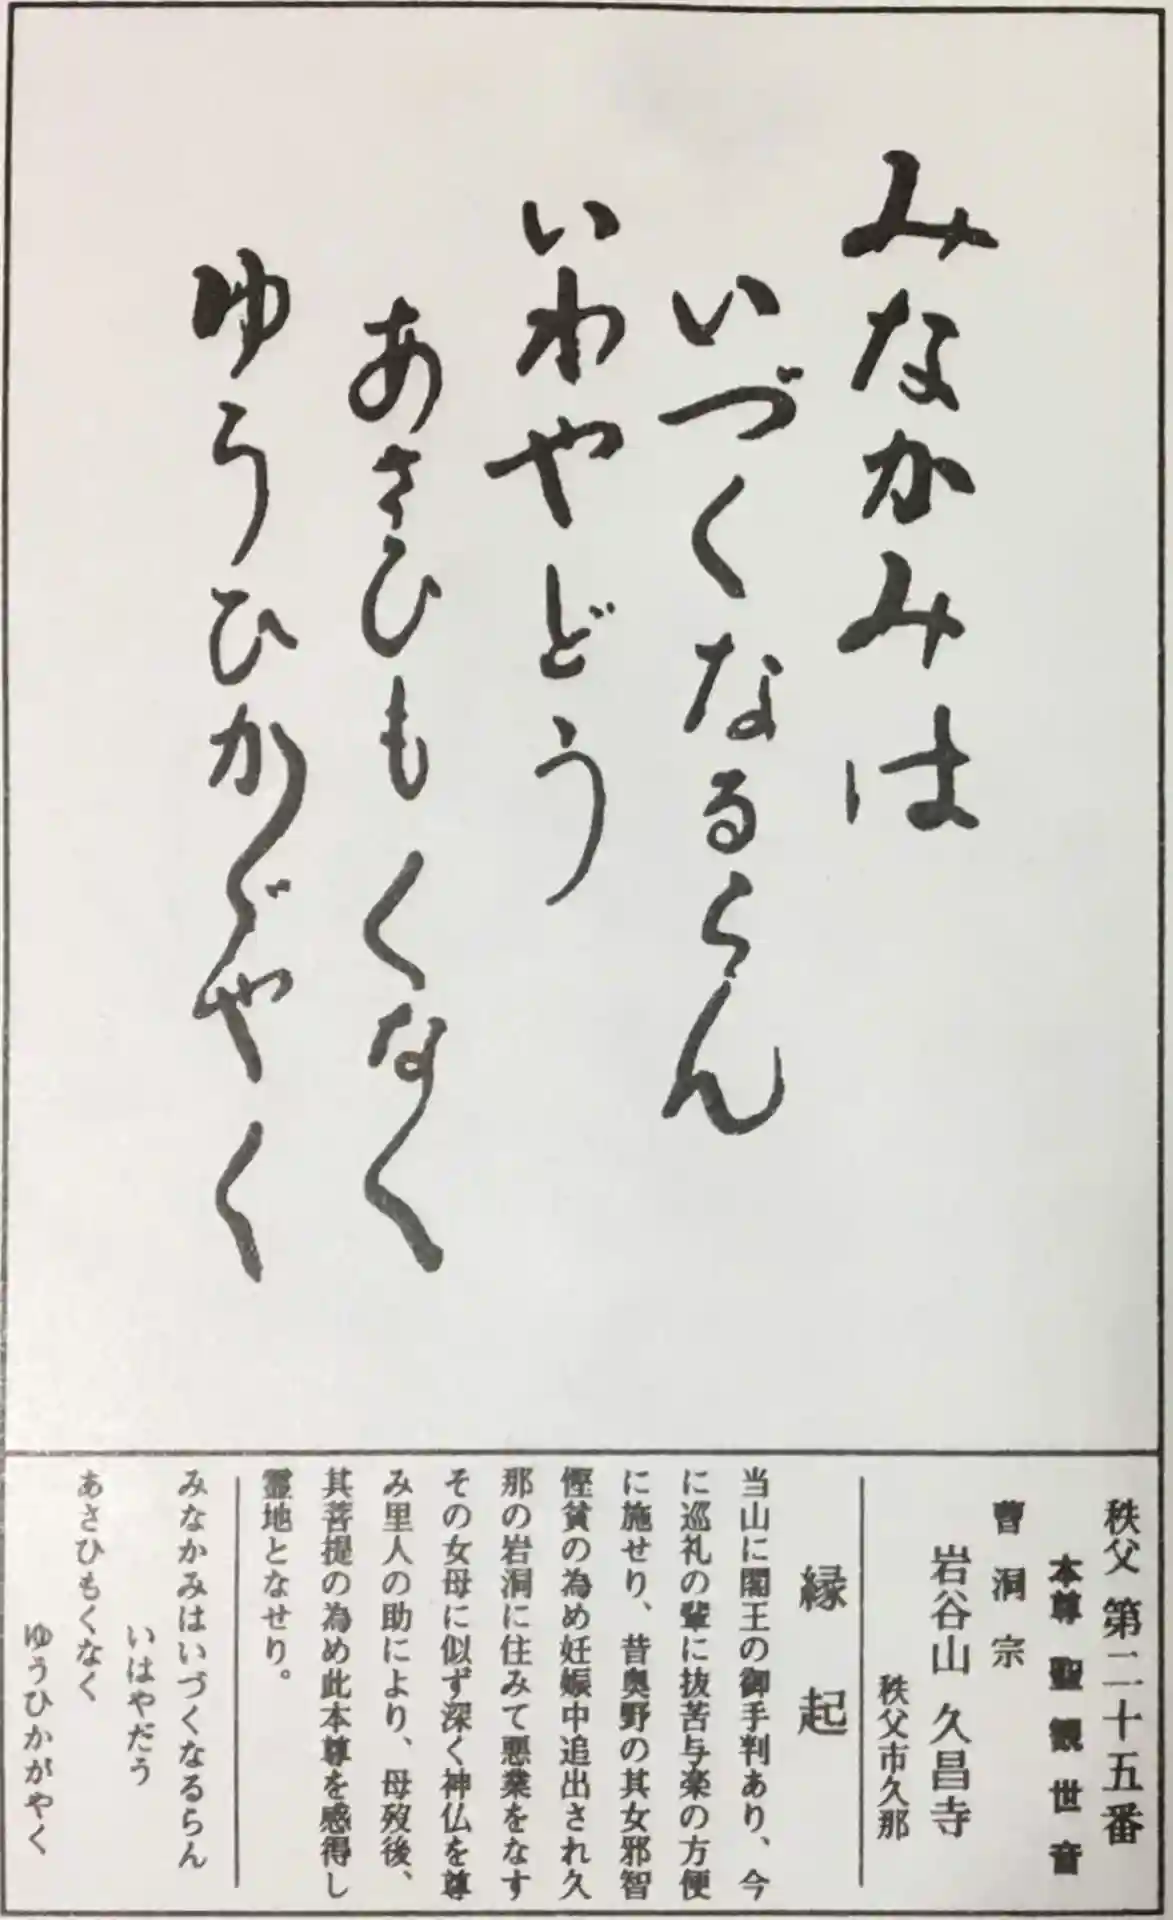 みなかみは
いづくなるらん
いわやどう
あさひもくなく
ゆうひかゞやく
秩父 第二十五番
本尊 聖観世音
曹洞宗
岩谷山 久昌寺
秩父市久那
縁起
当山に閻王の御手判あり、今
に巡礼の輩に抜苦与楽の方便
に施せり、昔奥野の其女邪智
慳貧の為め妊娠中追出され久
那の岩洞に住みて悪業をなす
その女母に似ず深く神仏を尊
み里人の助により、母歿後、
其菩提の為め此本尊を感得し
霊地となせり。
みなかみはいづくなるらん
いはやだう
あさひもくなく
ゆうひかがやく